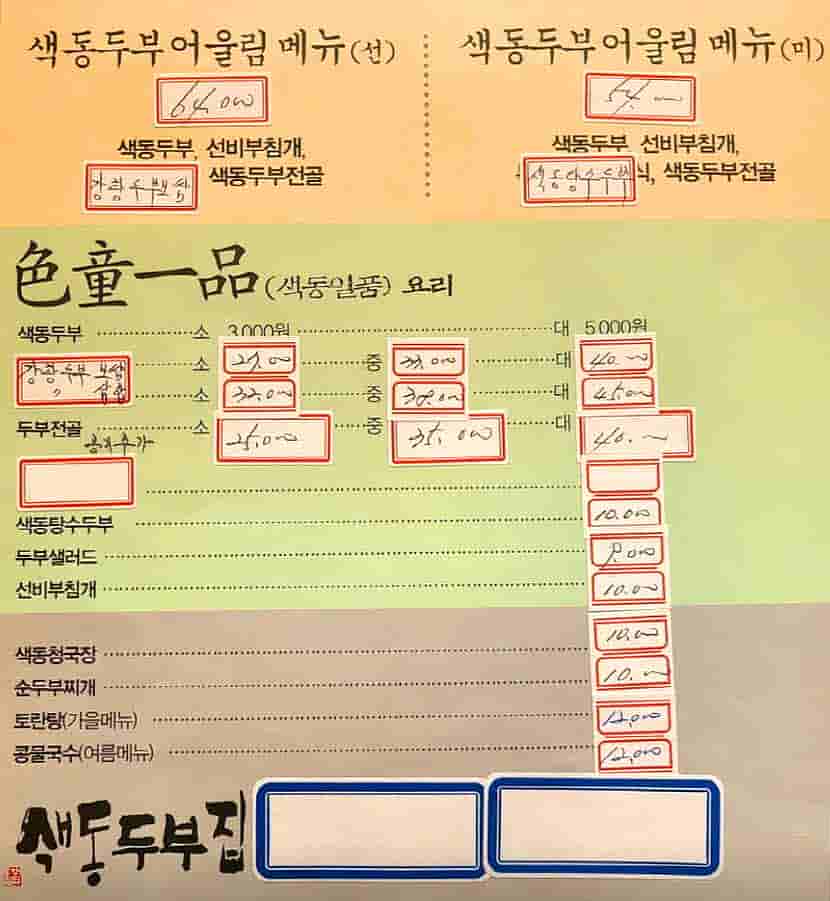 색동두부어울림메뉴(선)
64,000
색동두부, 선비부침개,
강황두부보쌈 색동두부전골
색동두부어울림메뉴(미)
54,000
색동두부, 선비부침개,
색동탕수두부 식, 색동두부전골
色童一品(색동일품) 요리
색동두부 소 3,000원 대 5,000원
강황두부 보쌈 소 27.000 중 33.000 대 40.000
〃 삼합 소 32.000 중 38.000 대 45.000
두부전골 소 25.000 중 35.000 대 40.000
색동탕수두부 10.000
두부샐러드 9.000
선비부침개 10.000
색동청국장 10.000
순두부찌개 10.000
토란탕(가을메뉴) 12,000
콩물국수(여름메뉴) 12,000
색동두부집